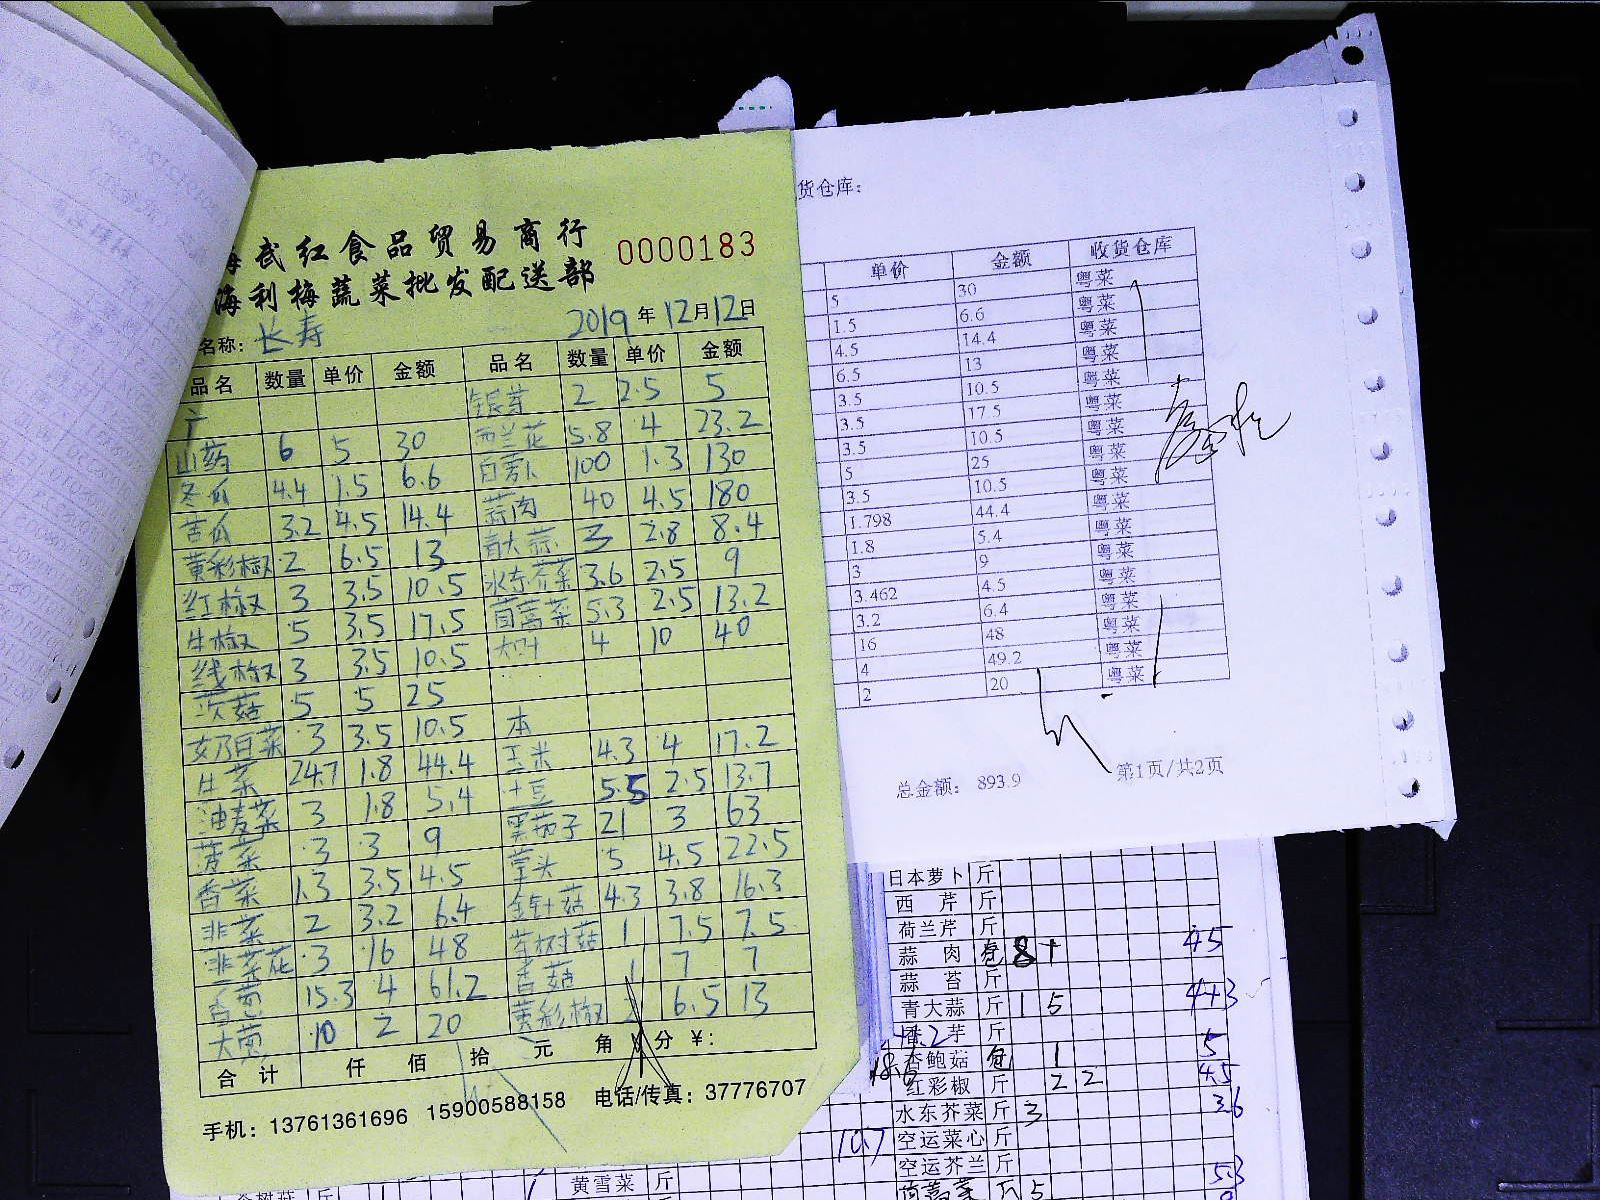 武红食品贸易商行 0000183
海利梅蔬菜批发配送部
名称: 长寿 2019年12月12日
品名 数量 单价 金额 品名 数量 单价 金额
广 银芽 2 2.5 5
山药 6 5 30 西兰花 5.8 4 23.2
冬瓜 4.4 1.5 6.6 白萝卜 100 1.3 130
苦瓜 3.2 4.5 14.4 蒜肉 40 4.5 180
黄彩椒 2 6.5 13 青大蒜 3 2.8 8.4
红椒 3 3.5 10.5 水东芥菜 3.6 2.5 9
牛椒 5 3.5 17.5 茼蒿菜 5.3 2.5 13.2
线椒 3 3.5 10.5 大叶 4 10 40
茨菇 5 5 25
奶白菜 3 3.5 10.5 本
生菜 24.7 1.8 44.4 玉米 4.3 4 17.2
油麦菜 3 1.8 5.4 土豆 5.5 2.5 13.7
菠菜 3 3 9 黑茄子 21 3 63
香菜 1.3 3.5 4.5 草头 5 4.5 22.5
韭菜 2 3.2 6.4 金针菇 4.3 3.8 16.3
韭菜花 3 16 48 茶树菇 1 7.5 7.5
百葱 15.3 4 61.2 香菇 1 7 7
大葱 10 2 20 黄彩椒 2 6.5 13
合计 仟 佰 拾 元 角 分 ¥:
手机: 13761361696 15900588158 电话/传真: 37776707
货仓库:
单价 金额 收货仓库
5 30 粤菜
1.5 6.6 粤菜
4.5 14.4 粤菜
6.5 13 粤菜
3.5 10.5 粤菜
3.5 17.5 粤菜
3.5 10.5 粤菜
5 25 粤菜
3.5 10.5 粤菜
1.798 44.4 粤菜
1.8 5.4 粤菜
3 9 粤菜
3.462 4.5 粤菜
3.2 6.4 粤菜
16 48 粤菜
4 49.2 粤菜
2 20 粤菜
总金额: 893.9 第1页/共2页
日本萝卜 斤
西芹 斤
荷兰芹 斤
蒜肉 包 8 45
蒜苔 斤
青大蒜 斤 1 5 4+3
芋 斤
杏鲍菇 包 1 5
红彩椒 斤 2 2 4.5
水东芥菜 斤 3 3.6
10.7 空运菜心 斤
空运芥兰 斤
茼蒿菜 斤 5 5.3
黄雪菜 斤